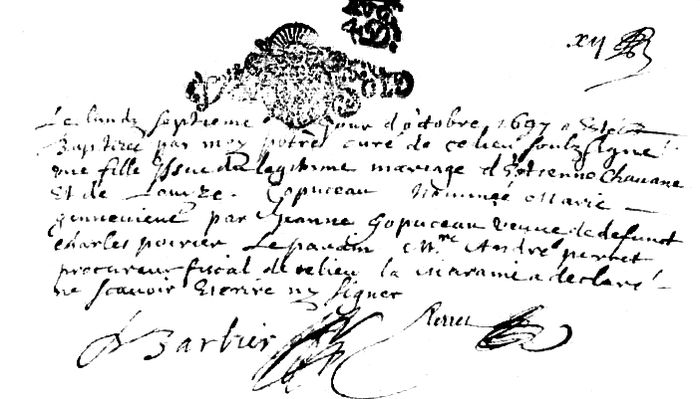 xij
Le lundy septieme jour d'octobre 1697 a Esté
Baptizee par moy potre curé de ce lieu soubzsigné
une fille Issue du legitime mariage d'Estienne Chavane
Et de Louize Gopuceau Nommée Marie
genneviene par Jeanne Gopuceau veuve de defunct
charles poirier Le parain Mre André perret
procureur fiscal de ce lieu la Maraine a declaré
ne scavoir Escrire ny signer
Barbier
Perret